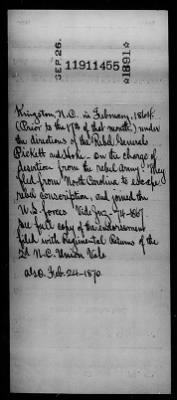 SEP 26.
11911455
*1891*
Kingston, N.C. in February, 1864.
(Prior to the 17th of that month) under
the directions of the Rebel Generals
Pickett and Hoke - on the charge of
desertion from the rebel Army. They
fled from North Carolina to escape
rebel conscription, and joined the
U.S. forces Vide
See full copy of the endorsement
filed with Regimental Returns of the
2d N.C. Union Vols
A.G.O. Feb. 24-1870